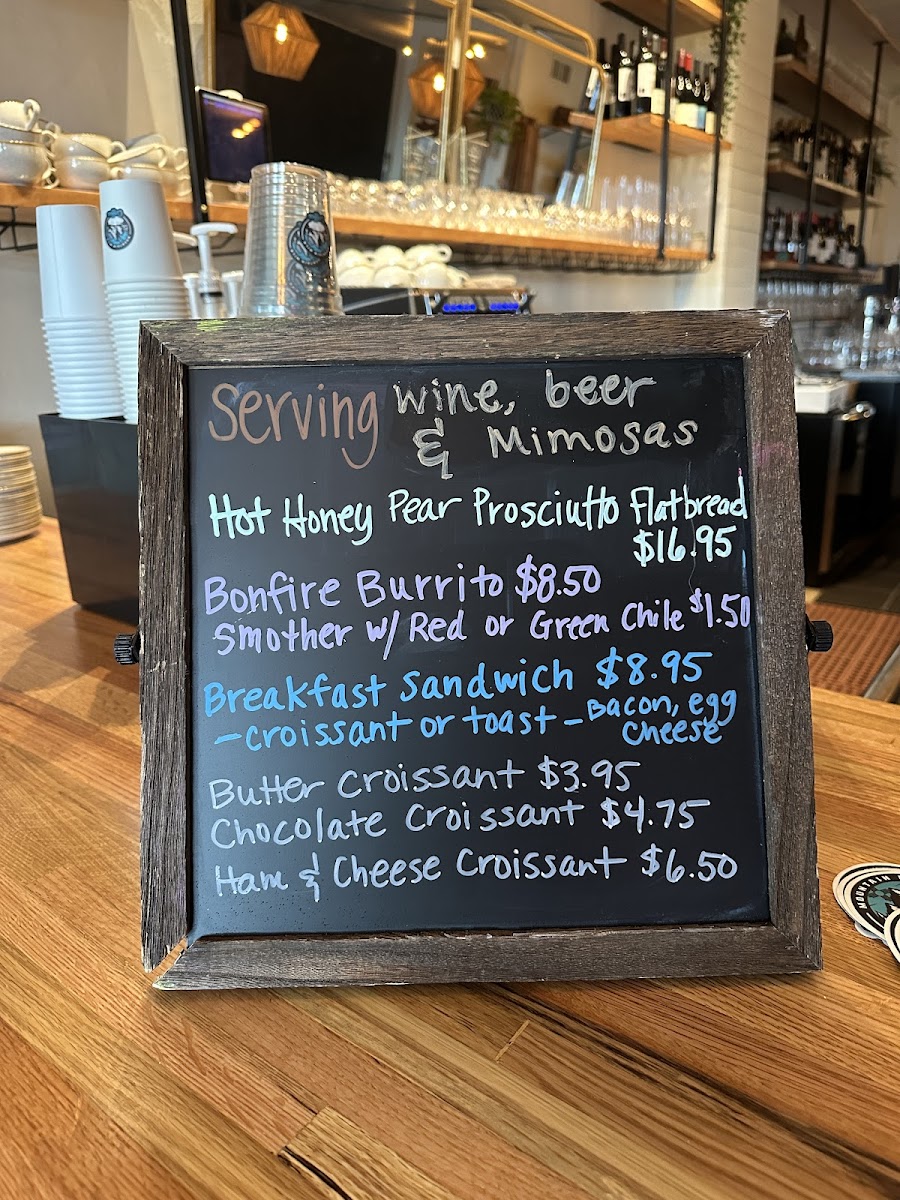 Serving wine, beer
& Mimosas
Hot Honey Pear Prosciutto Flatbread
$16.95
Bonfire Burrito $8.50
Smother w/ Red or Green Chile $1.50
Breakfast Sandwich $8.95
- croissant or toast - Bacon, egg
cheese
Butter Croissant $3.95
Chocolate Croissant $4.75
Ham & Cheese Croissant $6.50
MOUNTAIN